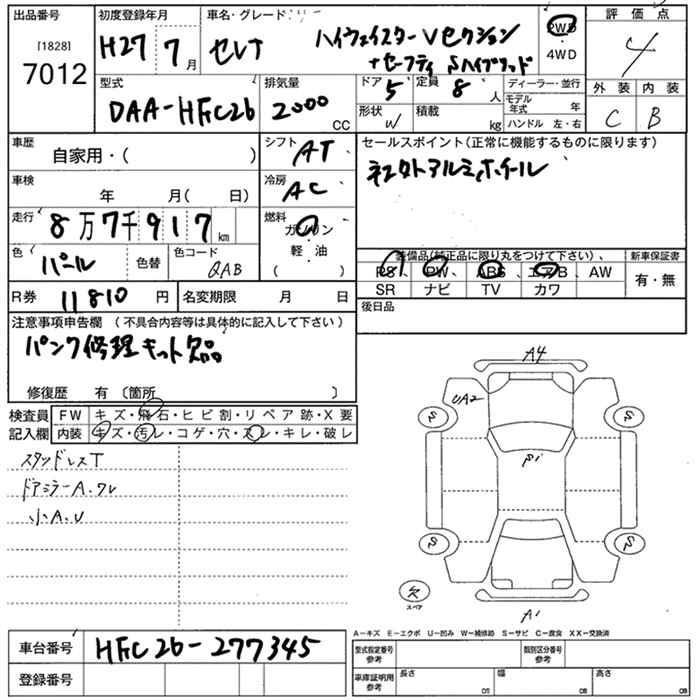 出品番号
[1828]
7012
初度登録年月
H27 7月
車名・グレード
セレナ
ハイウェイスター Vセクション
+セーフティ Sハイブリッド
2WD
4WD
評価点
4
外装 内装
C B
型式
DAA-HFC26
排気量
2000
CC
ドア 5
定員 8 人
形状 W
積載 kg
ディーラー・並行
モデル年式 年
ハンドル 左・右
車歴
自家用・( )
シフト
AT
車検
年 月( 日)
冷房
AC
走行
8万7千917km
燃料
ガソリン
軽・油
( )
色
パール
色替
色コード
QAB
R券 11810 円
名変期限 月 日
セールスポイント(正常に機能するものに限ります)
社外アルミホイール
装備品(純正品に限り丸をつけて下さい)、
PS、PW、ABS、エアB、AW
SR ナビ TV カワ
新車保証書
有・無
後日品
注意事項申告欄 (不具合内容等は具体的に記入して下さい)
パンク修理キット欠品
修復歴 有 〔箇所 〕
検査員
記入欄
FW キズ・飛石・ヒビ割・リペア跡・X要
内装 キズ・汚レ・コゲ・穴・スレ・キレ・破レ
スタッドレスT
ドアミラーA.ワレ
小A.U
A4
UA2
S
S
S
S
欠
スペア
A1
A-キズ E-エクボ U-凹み W-補修跡 S-サビ C-腐食 XX-交換済
車台番号
HFC26-277345
登録番号
型式指定番号
参考
類別区分番号
参考
車庫証明用
参考
長さ
幅
高さ